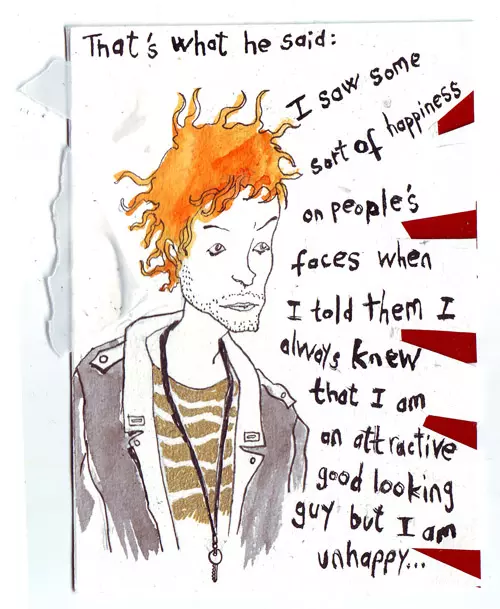 That's what he said:
I saw some
sort of happiness
on people's
faces when
I told them I
always knew
that I am
an attractive
good looking
guy but I am
unhappy...